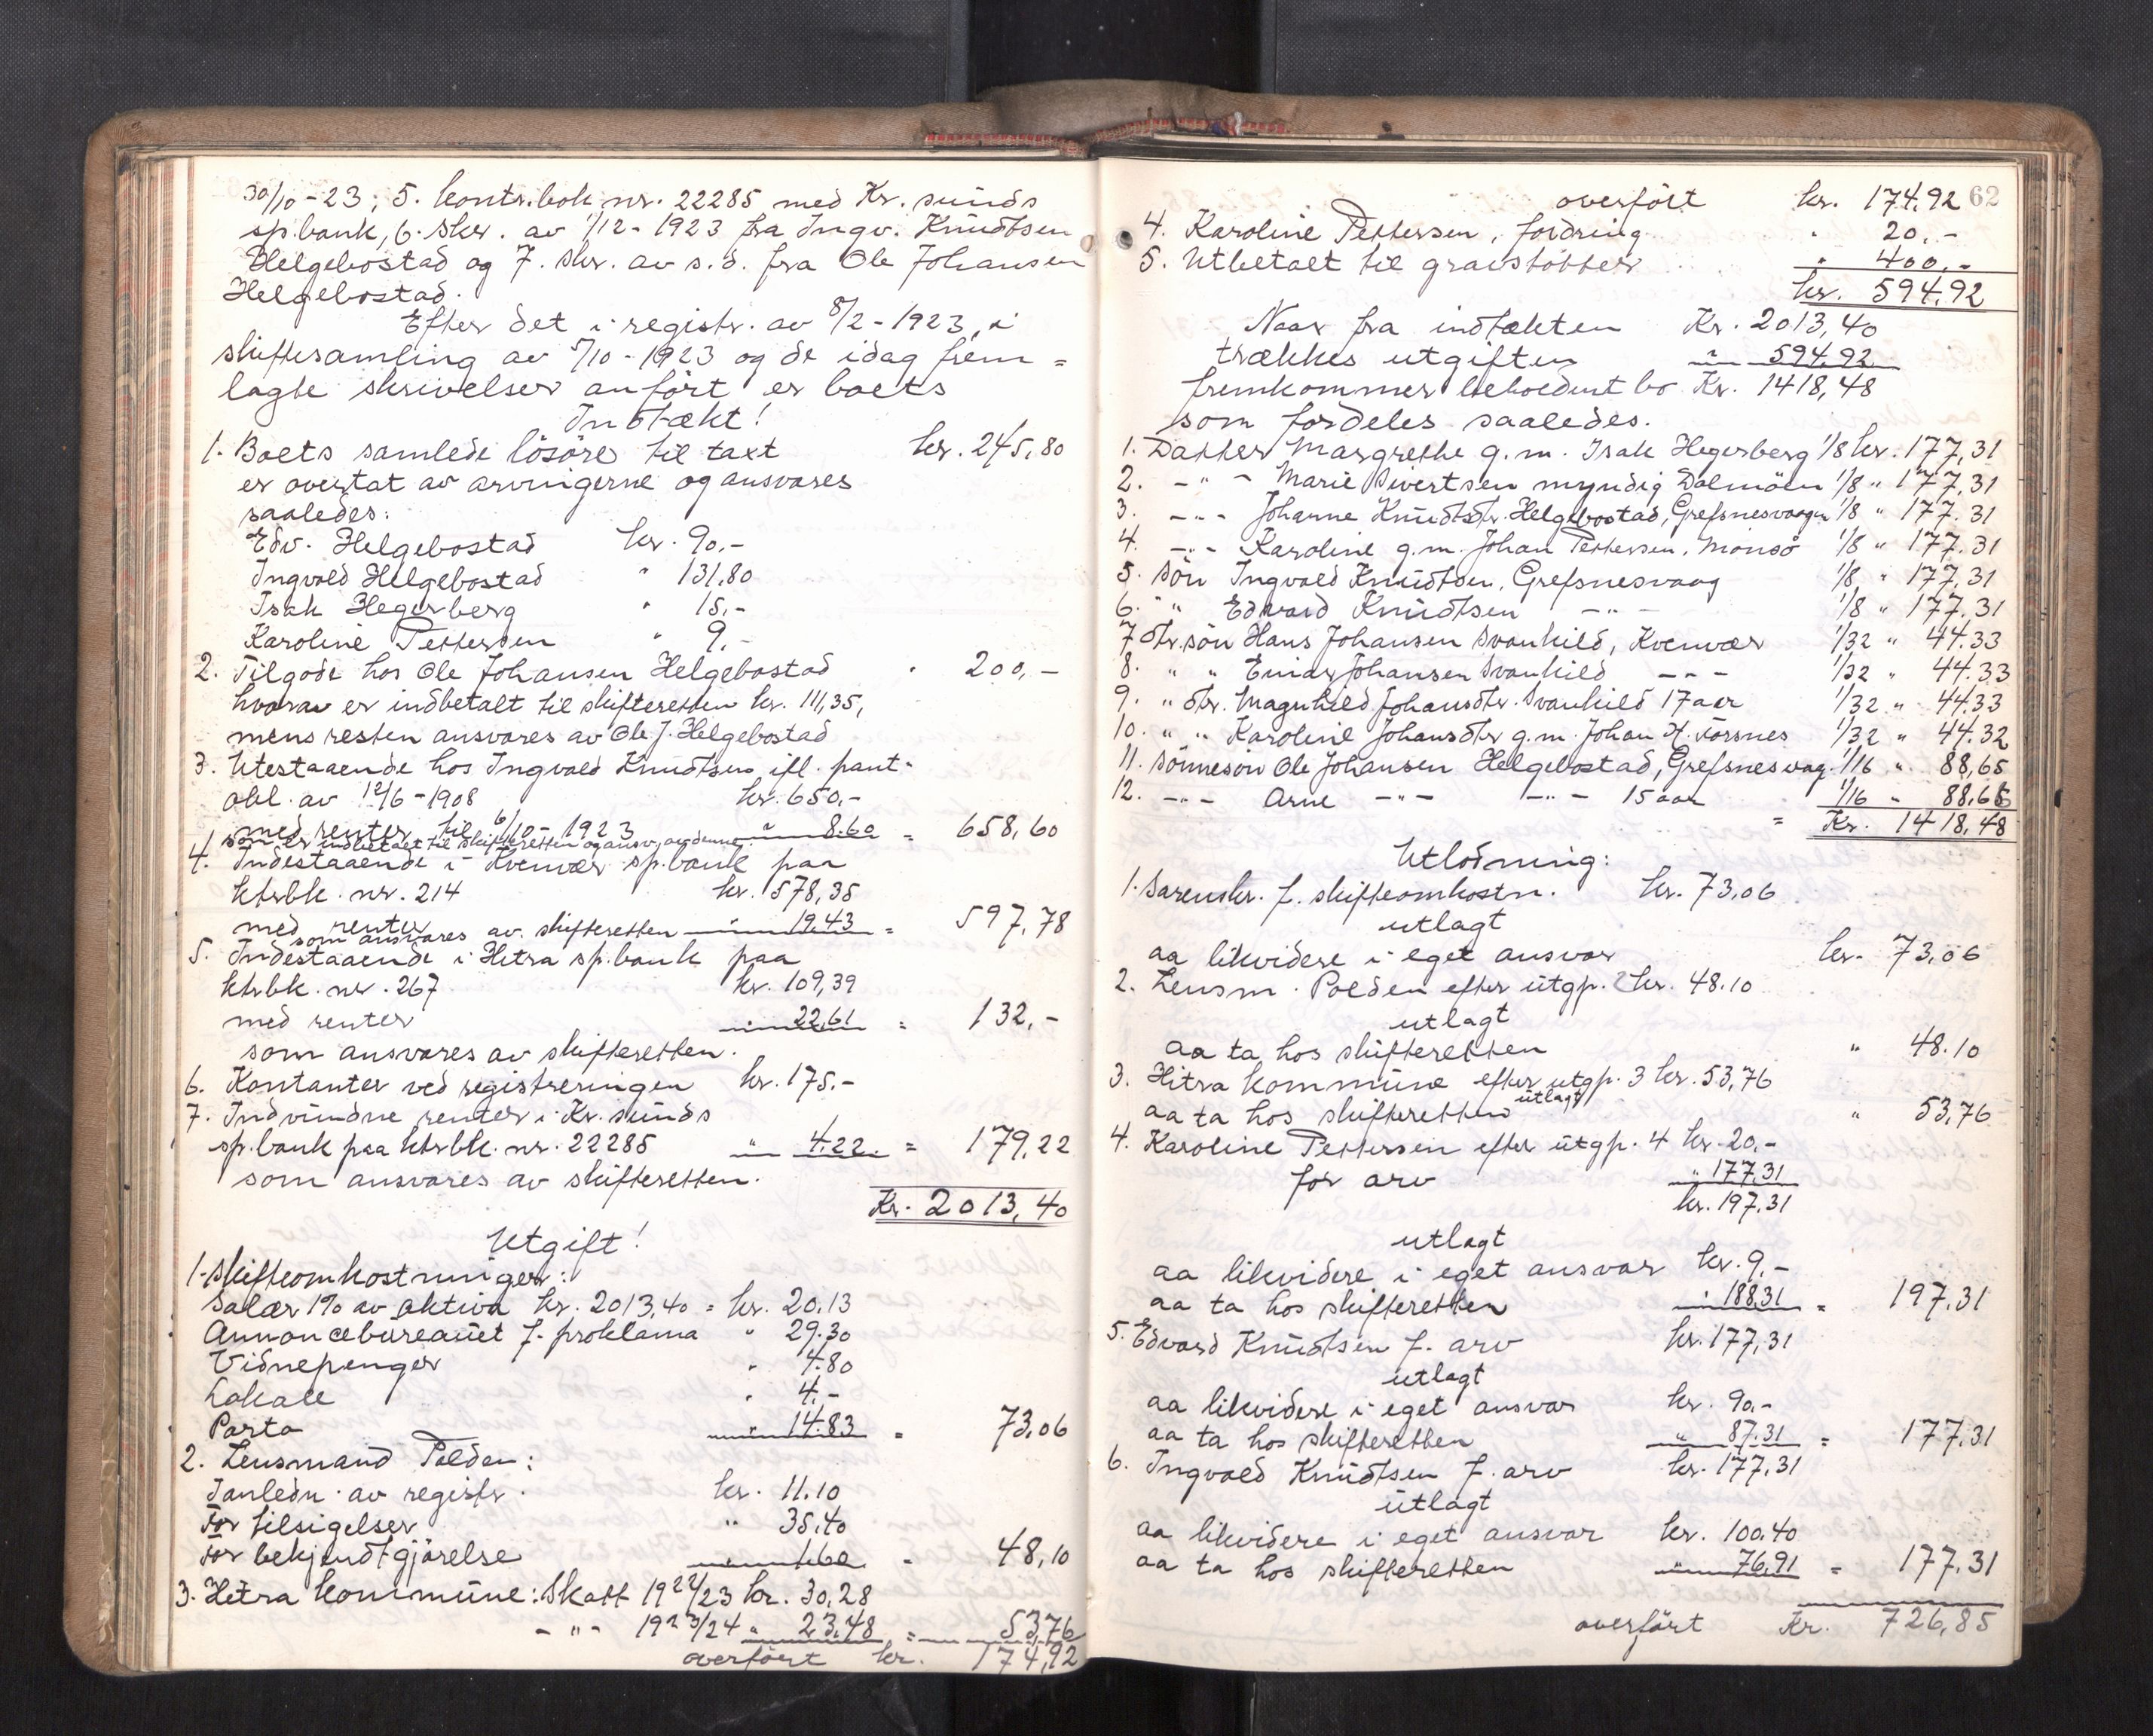 30/10-23; 5. kontr.bok nr. 22285 med Kr. sunds
sp.bank, 6. skr. av 1/12-1923 fra Ingv. Knudtsen
Helgebostad og 7. skr. av s.d. fra Ole Johansen
Helgebostad.
Efter det i registr. av 8/2-1923, i
skiftesamling av 5/10-1923 og de idag frem=
lagte skrivelser anført er boets
Indtækt!
1. Boets samlede lösöre til taxt kr. 245,80
er overtat av arvingerne og ansvares
saaledes:
Edv. Helgebostad kr. 90,-
Ingvald Helgebostad " 131,80
Isak Hegerberg " 15,-
Karoline Pettersen " 9,-
2. Tilgode hos Ole Johansen Helgebostad " 200,-
hvorav er indbetalt til skifteretten kr. 111,35,
mens resten ansvares av Ole J. Helgebostad
3. Utestaaende hos Ingvald Knudtsen ifl. pant-
obl. av 12/6-1908 kr. 650,-
med renter til 6/10-1923 " 8.60 = 658,60
som er indbetalt til skifteretten og ansv. av denne.
4. Indestaaende i Kvenvær sp.bank paa
ktrbk. nr. 214 kr. 578,35
med renter " 19.43 = 597,78
som ansvares av skifteretten
5. Indestaaende i Hitra sp.bank paa
ktrbk. nr. 267 kr. 109,39
med renter " 22,61 = 132,-
som ansvares av skifteretten.
6. Kontanter ved registreringen kr. 175,-
7. Indvundne renter i Kr. sunds
sp.bank paa ktrbk. nr. 22285 " 4.22. = 179,22
som ansvares av skifteretten.
Kr. 2013,40
Utgift!
1. Skifteomkostninger:
Salær 1% av aktiva kr. 2013,40 = kr. 20.13
Annoncebureauet f. proklama " 29.30
Vidnepenger " 4.80
Lokale " 4.-
Porto " 14.83 = 73,06
2. Lensmand Polden:
I anledn. av registr. kr. 11.10
For tilsigelser " 35.40
For bekjendtgjörelse " 1.60 = 48,10
3. Hitra kommune: Skatt 1922/23 kr. 30,28
- " - 1923/24 " 23,48 = 53,76
overført kr. 174,92
62
overfört kr. 174.92
4. Karoline Pettersen, fordring " 20.-
5. Utbetalt til gravstötter " 400.-
kr. 594,92
Naar fra indtækten Kr. 2013,40
trækkes utgiften " 594,92
fremkommer beholdent bo Kr. 1418,48
som fordeles saaledes.
1. Datter Margrethe g.m. Isak Hegerberg 1/8 kr. 177,31
2. - " - Marie Sivertsen myndig Dolmöen 1/8 " 177,31
3. - " - Johanne Knudtsdtr. Helgebostad, Grefsnesvaagen 1/8 " 177.31
4. - " - Karoline g.m. Johan Pettersen, Monsö 1/8 " 177.31
5. Sön Ingvald Knudtsen, Grefsnesvaag 1/8 " 177,31
6. " " Edvard Knudtsen - " - 1/8 " 177.31
7. dtr. sön Hans Johansen Svanhild, Kvenvær 1/32 " 44.33
8. " " Einar Johansen Svanhild - " - 1/32 " 44.33
9. " dtr. Magnhild Johansdtr. Svanhild 17 aar 1/32 " 44.33
10. " " Karoline Johansdtr g.m. Johan H. Forsnes 1/32 " 44.32
11. Sönnesön Ole Johansen Helgebostad, Grefsnesvaag. 1/16 " 88,65
12. - " - Arne - " - - " - 15 aar 1/16 " 88,65
= Kr. 1418,48
Utlodning:
1. Sorenskr. f. skifteomkostn. kr. 73,06
utlagt
aa likvidere i eget ansvar kr. 73,06
2. Lensm. Polden efter utgp. 2 kr. 48.10
utlagt
aa ta hos skifteretten " 48.10
3. Hitra kommune efter utgp. 3 kr. 53,76
utlagt
aa ta hos skifteretten " 53,76
4. Karoline Pettersen efter utgp. 4 kr. 20,-
for arv " 177.31
kr. 197.31
utlagt
aa likvidere i eget ansvar kr. 9,-
aa ta hos skifteretten " 188.31 = 197.31
5. Edvard Knudtsen f. arv kr. 177,31
utlagt
aa likvidere i eget ansvar kr. 90,-
aa ta hos skifteretten " 87.31 = 177.31
6. Ingvald Knudtsen f. arv kr. 177,31
utlagt
aa likvidere i eget ansvar kr. 100.40
aa ta hos skifteretten " 76,91 = 177.31
overfört Kr. 726,85